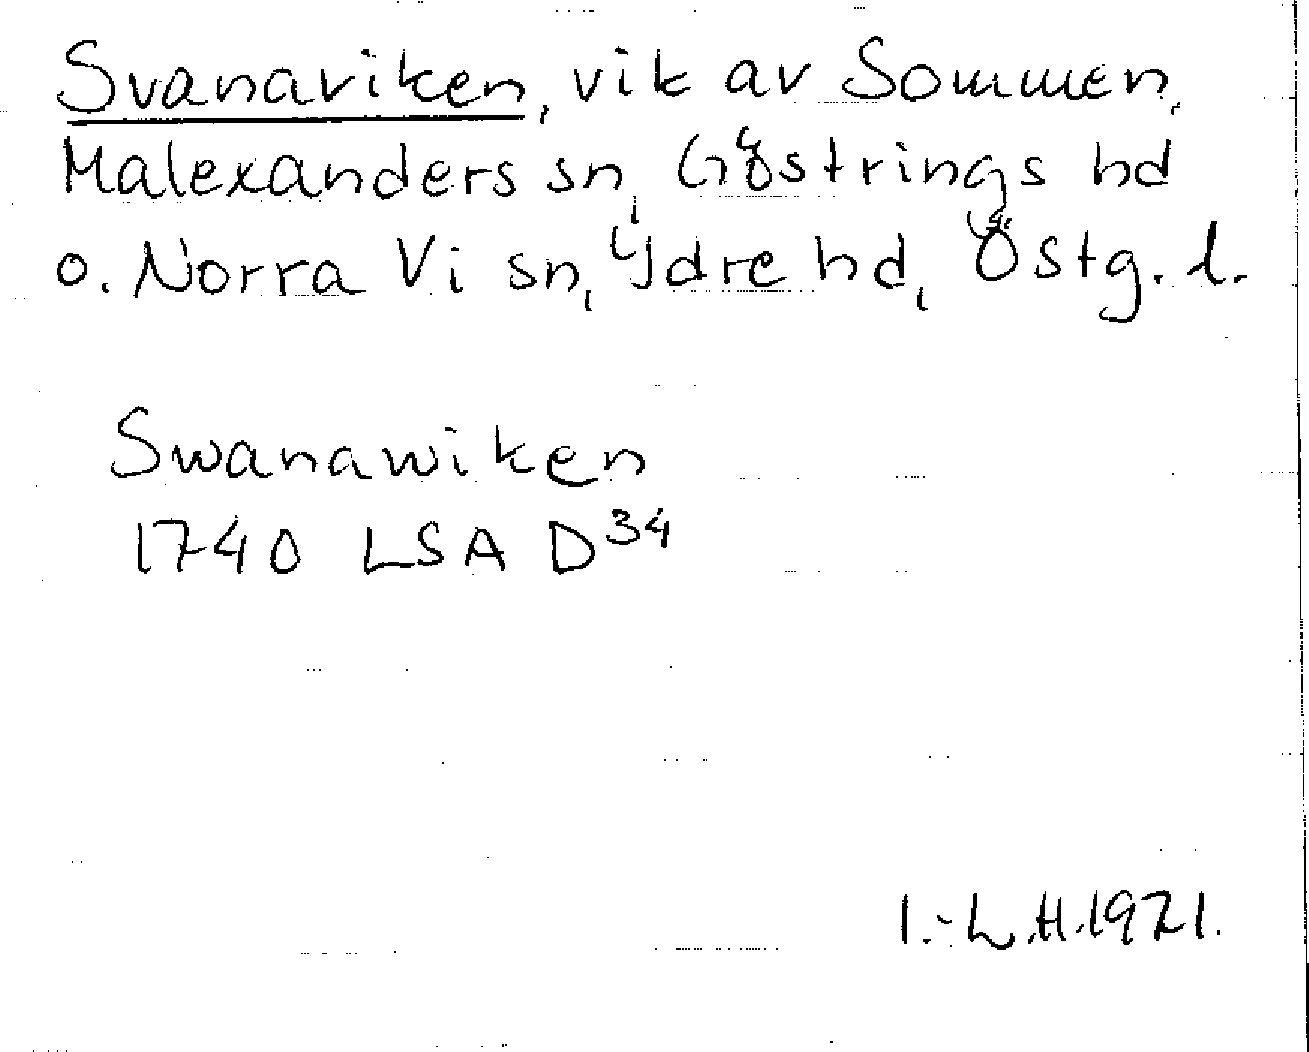 Svanaviken, vik av Sommen,
Malexanders sn, Göstrings hd
o. Norra Vi sn, Ydre hd, Östg. l.
Swanawiken
1740 LSA D34
I.-L.H.1971.